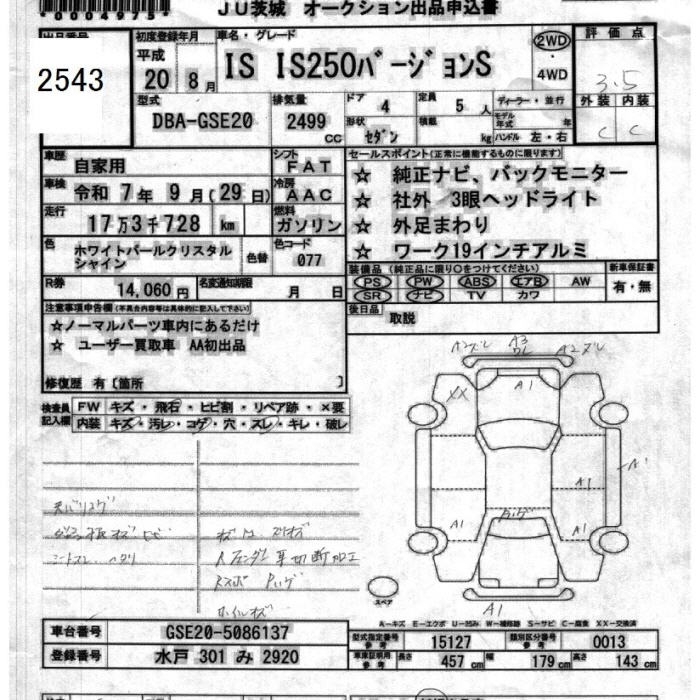 *0004975*
JU茨城 オークション出品申込書
出品番号
2543
初度登録年月
平成
20 8月
車名・グレード
IS IS250バージョンS
2WD
4WD
評価点
3.5
外装 内装
C C
型式
DBA-GSE20
排気量
2499 CC
ドア 4
形状 セダン
定員 5 人
積載 kg
ディーラー・並行
モデル年式 年
ハンドル 左・右
車歴 自家用
シフト FAT
車検 令和 7年 9月(29日)
冷房 AAC
走行 17万3千728 km
燃料 ガソリン
色 ホワイトパールクリスタルシャイン
色替
色コード 077
R券 14,060円
名変通知期限 月 日
セールスポイント(正常に機能するものに限ります)
☆ 純正ナビ、バックモニター
☆ 社外 3眼ヘッドライト
☆ 外足まわり
☆ ワーク19インチアルミ
装備品(純正品に限り○をつけてください)
PS PW ABS エアB AW
SR ナビ TV カワ
新車保証書
有・無
後日品 取説
注意事項申告欄(不具合内容は具体的に記入して下さい)
☆ノーマルパーツ車内にあるだけ
☆ ユーザー買取車 AA初出品
修復歴 有[箇所 ]
検査員記入欄
FW キズ・飛石・ヒビ割・リペア跡・×要
内装 キズ・汚レ・コゲ・穴・スレ・キレ・破レ
A3
A1
XX
A1
A1
A1
A1
A1
A1
スペア
A―キズ E―エクボ U―凹み W―補修跡 S―サビ C―腐食 XX―交換済
車台番号 GSE20-5086137
登録番号 水戸 301 み 2920
型式指定番号 参考 15127
類別区分番号 参考 0013
車庫証明用 参考 長さ 457 cm 幅 179 cm 高さ 143 cm